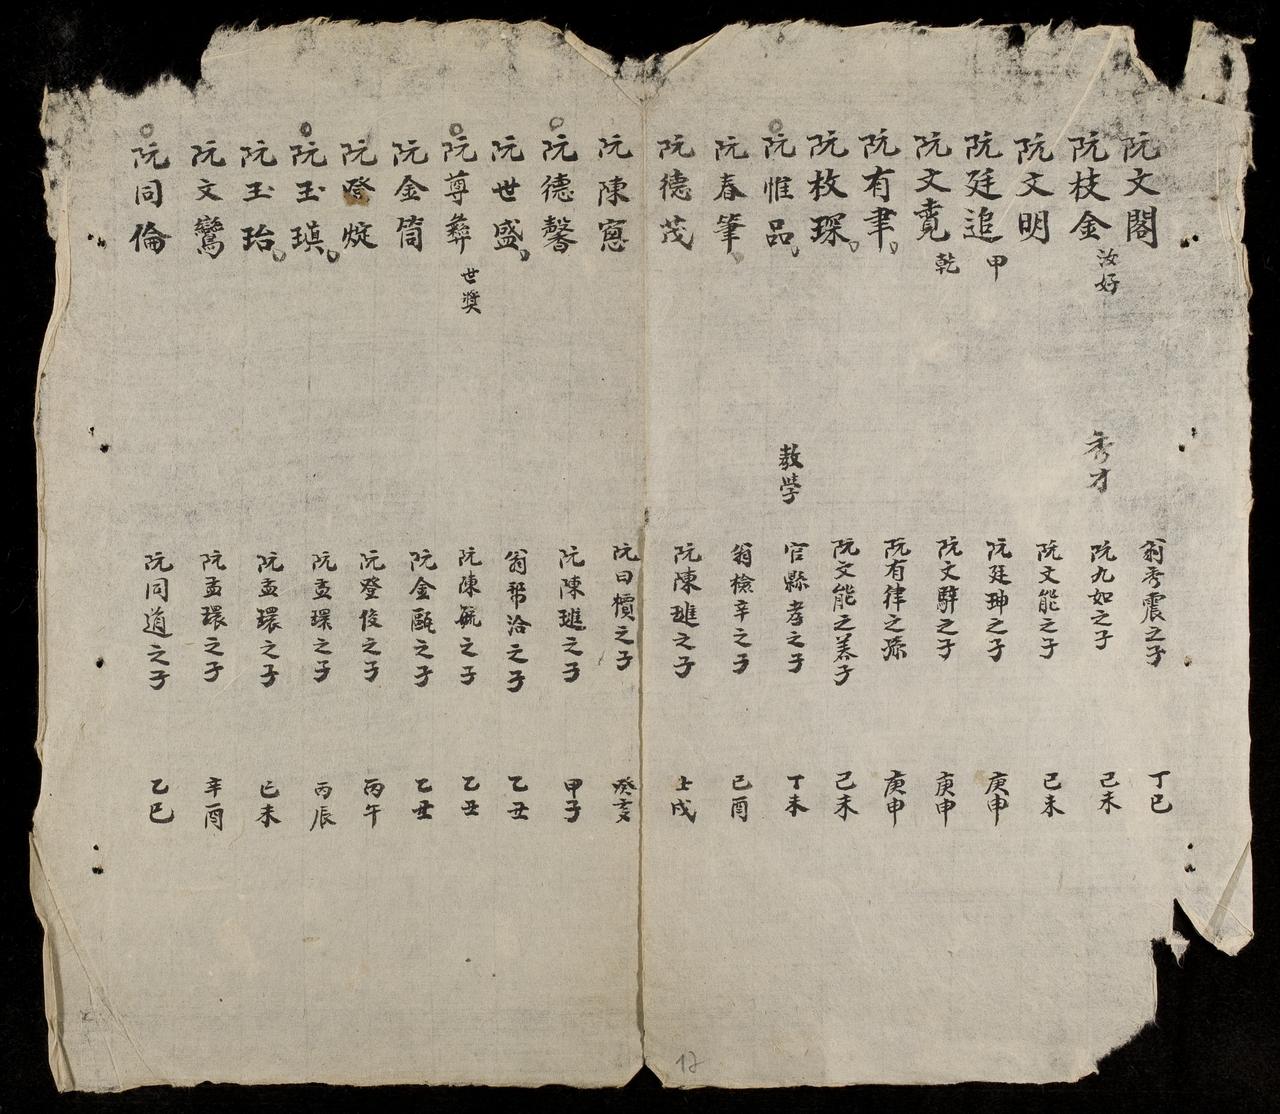 阮文閣 翁秀震之子 丁巳
阮枝金 汝好 秀才 阮九如之子 己未
阮文明 阮文能之子 己未
阮廷追 甲 阮廷珅之子 庚申
阮文賁 乾 阮文騂之子 庚申
阮有聿 阮有律之孫 庚申
阮枚琛 阮文能之養子 己未
阮惟品 教學 官縣孝之子 丁未
阮春筆 翁檢辛之子 己酉
阮德茂 阮陳璡之子 壬戌
阮陳窻 阮曰櫝之子 癸亥
阮德馨 阮陳璡之子 甲子
阮世盛 翁帮洽之子 乙丑
阮尊彝 世奬 阮陳毓之子 乙丑
阮金筒 阮金甌之子 乙丑
阮登烶 阮登俊之子 丙午
阮玉瑱 阮孟環之子 丙辰
阮玉珆 阮孟環之子 己未
阮文鸞 阮孟環之子 辛酉
阮同倫 阮同道之子 乙巳
17